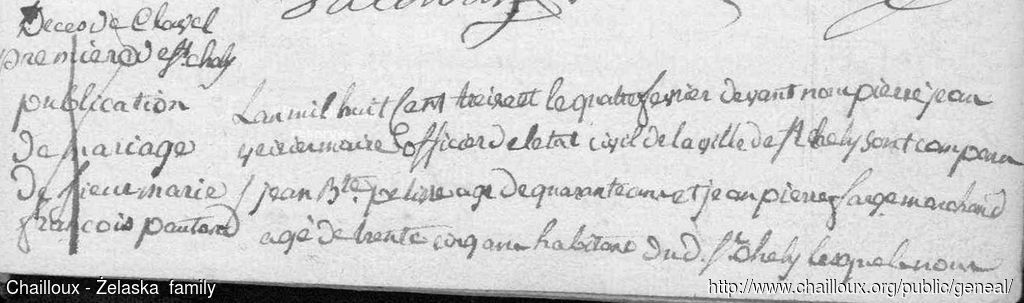 Deces de Clavel
premiere de St chely
publication
de mariage
de sieur marie
françois pautard
Lan mil huit Cent treize et le quatre fevrier devant nous pierre jean
maire officier de letat civil de la ville de St Chely sont comparu
jean Bte agé de quarante ans et jean pierre farge marchand
agé de trente cinq ans habitans dud. St Chely lesquels nous
Chailloux - Żelaska family
http://www.chailloux.org/public/geneal/